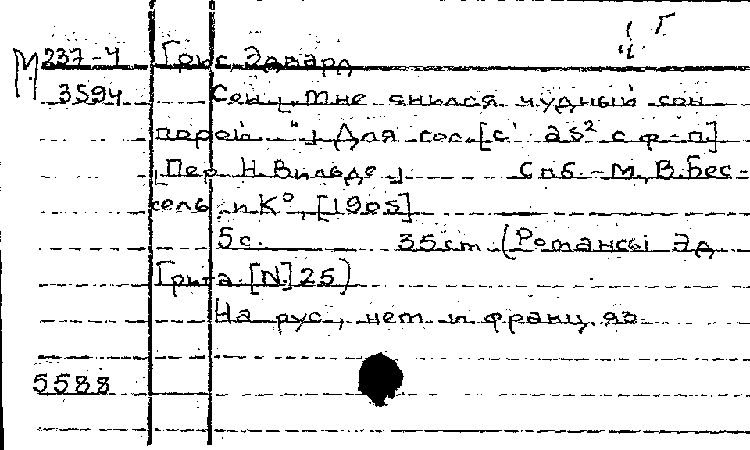 Г
М 237-4 Григ, Эдвард
3594 Сон [„Мне снился чудный сон
порой..."] Для гол. [c¹-as²] с ф-п.
[Пер. Н. Вильде] Спб.-М., В. Бес-
сель и К°, [1905]
5 с. 35 см (Романсы Эд.
Грига. [N.] 25)
На рус., нем. и франц. яз.
5588